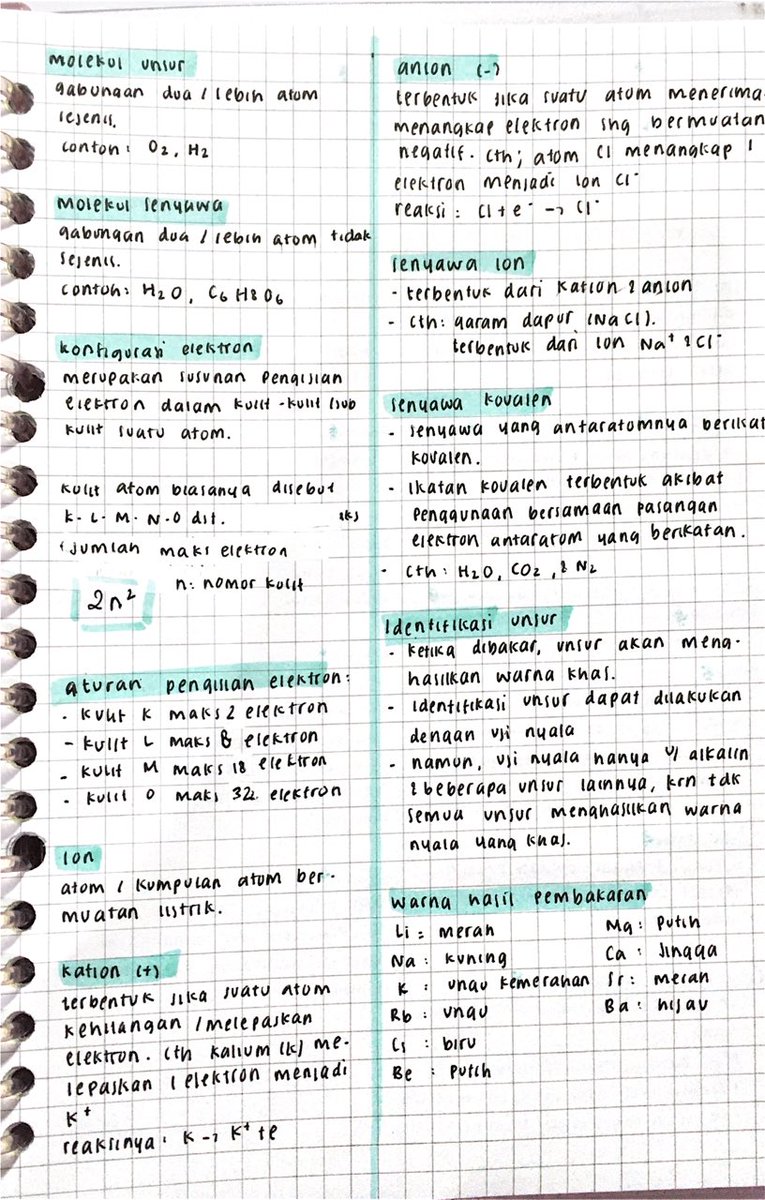 molekul unsur
gabungan dua / lebih atom
sejenis.
contoh: O2, H2
molekul senyawa
gabungan dua / lebih atom tidak
sejenis.
contoh: H2O, C6H8O6
konfigurasi elektron
merupakan susunan pengisian
elektron dalam kulit-kulit /sub
kulit suatu atom.
kulit atom biasanya disebut
K-L-M-N-O dst.
jumlah maks elektron
2n² n: nomor kulit
aturan pengisian elektron:
- kulit K maks 2 elektron
- kulit L maks 8 elektron
- kulit M maks 18 elektron
- kulit O maks 32 elektron
Ion
atom / kumpulan atom ber-
muatan listrik.
kation (+)
terbentuk jika suatu atom
kehilangan /melepaskan
elektron. Cth kalium (K) me-
lepaskan 1 elektron menjadi
K⁺
reaksinya: K → K⁺ + e
anion (-)
terbentuk jika suatu atom menerima
menangkap elektron shg bermuatan
negatif. Cth; atom Cl menangkap 1
elektron menjadi ion Cl⁻
reaksi: Cl + e⁻ → Cl⁻
senyawa ion
- terbentuk dari kation & anion
- Cth: garam dapur (NaCl).
terbentuk dari ion Na⁺ & Cl⁻
senyawa kovalen
- senyawa yang antaratomnya berikat
kovalen.
- ikatan kovalen terbentuk akibat
penggunaan bersamaan pasangan
elektron antaratom yang berikatan.
- Cth: H2O, CO2, & N2
Identifikasi unsur
- ketika dibakar, unsur akan meng-
hasilkan warna khas.
- identifikasi unsur dapat dilakukan
dengan uji nyala
- namun, uji nyala hanya u/ alkalin
& beberapa unsur lainnya, krn tdk
semua unsur menghasilkan warna
nyala yang khas.
warna hasil pembakaran
Li: merah
Na: kuning
K: ungu kemerahan
Rb: ungu
Cs: biru
Be: putih
Mg: putih
Ca: jingga
Sr: merah
Ba: hijau